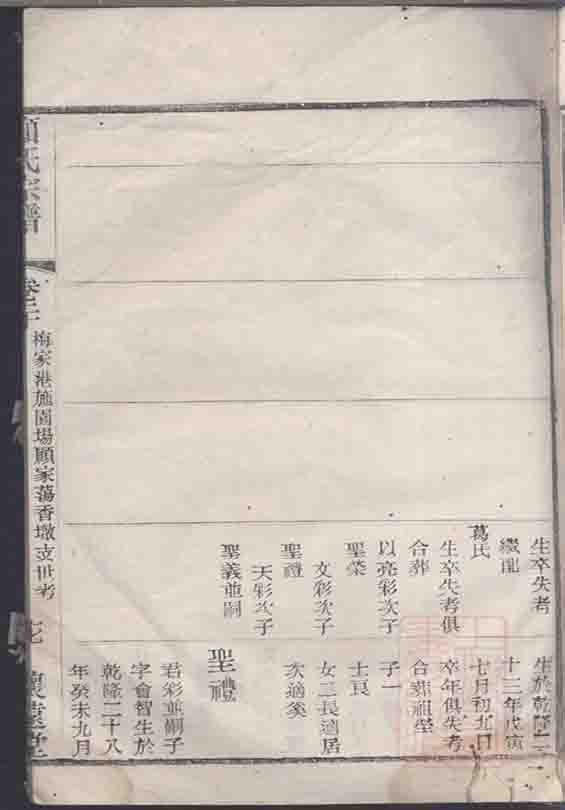 生卒失考
繼配
葛氏
生卒失考俱
合葬
以亮彩次子
聖榮
文彩次子
聖禮
天彩次子
聖義並嗣
生於乾隆二
十三年戊寅
七月初九日
卒年俱失考
合葬祖塋
子一
士良
女二長適居
次適奚
聖禮
君彩並嗣子
字會智生於
乾隆二十八
年癸未九月
顧氏宗譜
卷二十
梅家港施園場顧家蕩香墩支世考
七